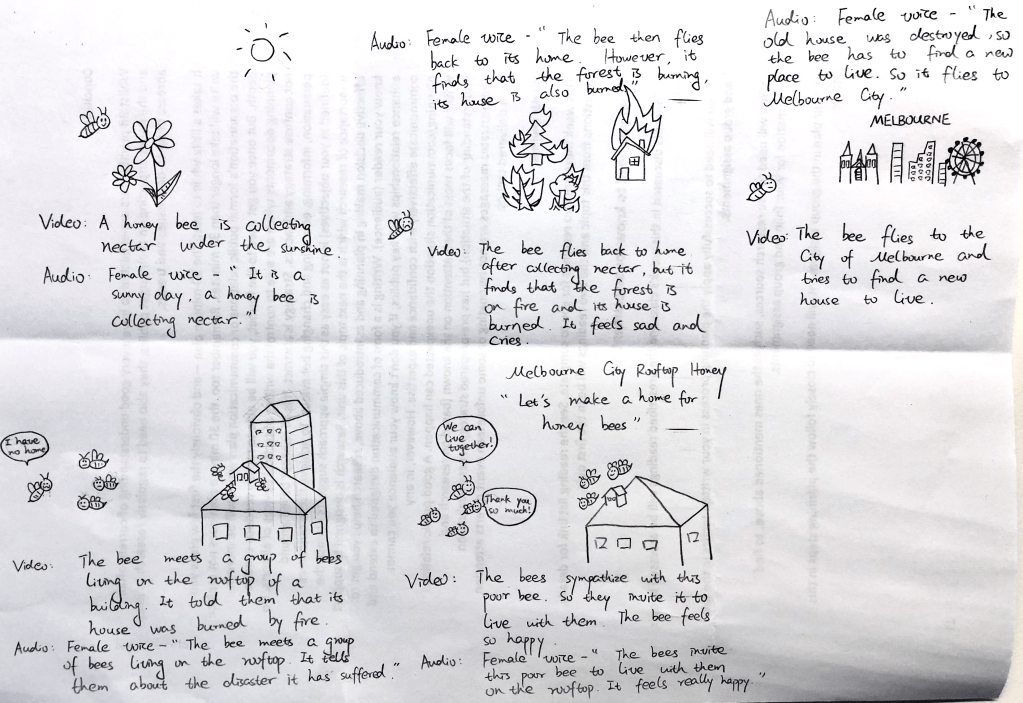 Video: A honey bee is collecting
nectar under the sunshine.
Audio: Female voice - "It is a
sunny day, a honey bee is
collecting nectar."
Audio: Female voice - "The bee then flies
back to its home. However, it
finds that the forest is burning,
its house is also burned"
Video: The bee flies back to home
after collecting nectar, but it
finds that the forest is
on fire and its house is
burned. It feels sad and
cries.
Audio: Female voice - "The
old house was destroyed, so
the bee has to find a new
place to live. So it flies to
Melbourne City."
MELBOURNE
Video: The bee flies to the
City of Melbourne and
tries to find a new
house to live.
I have
no home
Video: The bee meets a group of bees
living on the rooftop of a
building. It told them that its
house was burned by fire.
Audio: Female voice - "The bee meets a group
of bees living on the rooftop. It tells
them about the disaster it has suffered."
Melbourne City Rooftop Honey
"Let's make a home for
honey bees"
We can
live
together!
Thank you
so much!
Video: The bees sympathize with this
poor bee. So they invite it to
live with them. The bee feels
so happy.
Audio: Female voice - "The bees invite
this poor bee to live with them
on the rooftop. It feels really happy."